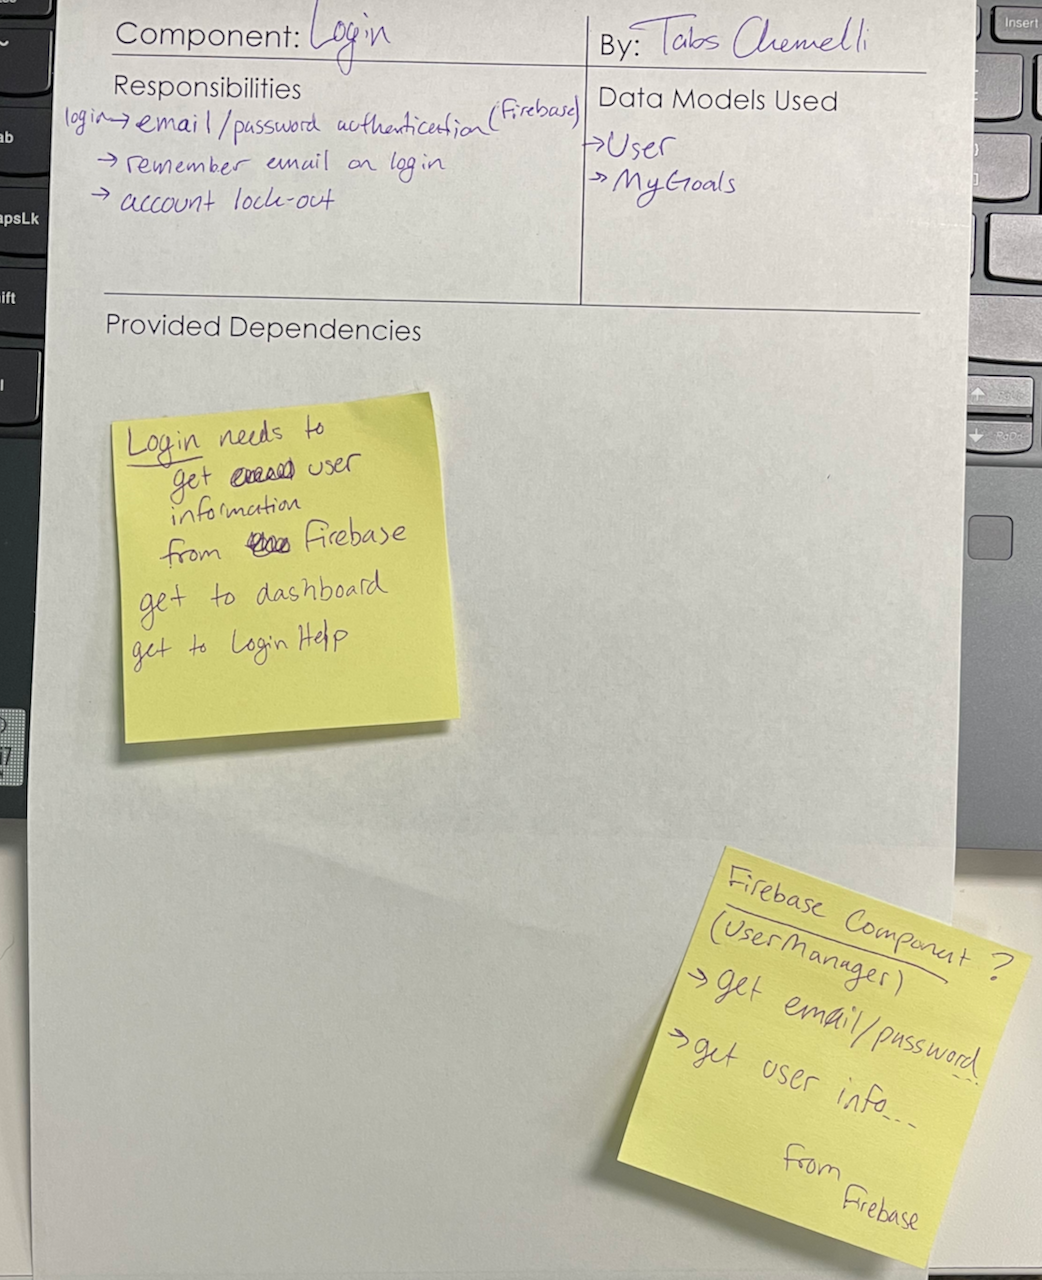 Component: Login
By: Tabs Chemelli
Responsibilities
login → email/password authentication (Firebase)
→ remember email on login
→ account lock-out
Data Models Used
→ User
→ MyGoals
Provided Dependencies
Login needs to
get user
information
from Firebase
get to dashboard
get to Login Help
Firebase Component?
(UserManager)
→ get email/password...
→ get user info...
from
Firebase
Insert
ab
apsLk
ift